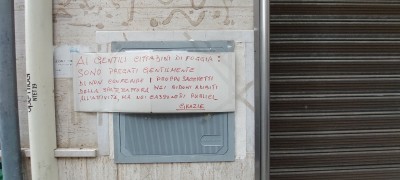 AI GENTILI CITTADINI DI FOGGIA:
SONO PREGATI GENTILMENTE
DI NON I PROPRI SACCHETTI
DELLA SPAZZATURA NEI BIDONI ADIBITI
ALL'ATTIVITÀ, MA NEI CASSONETTI PUBBLICI.
GRAZIE